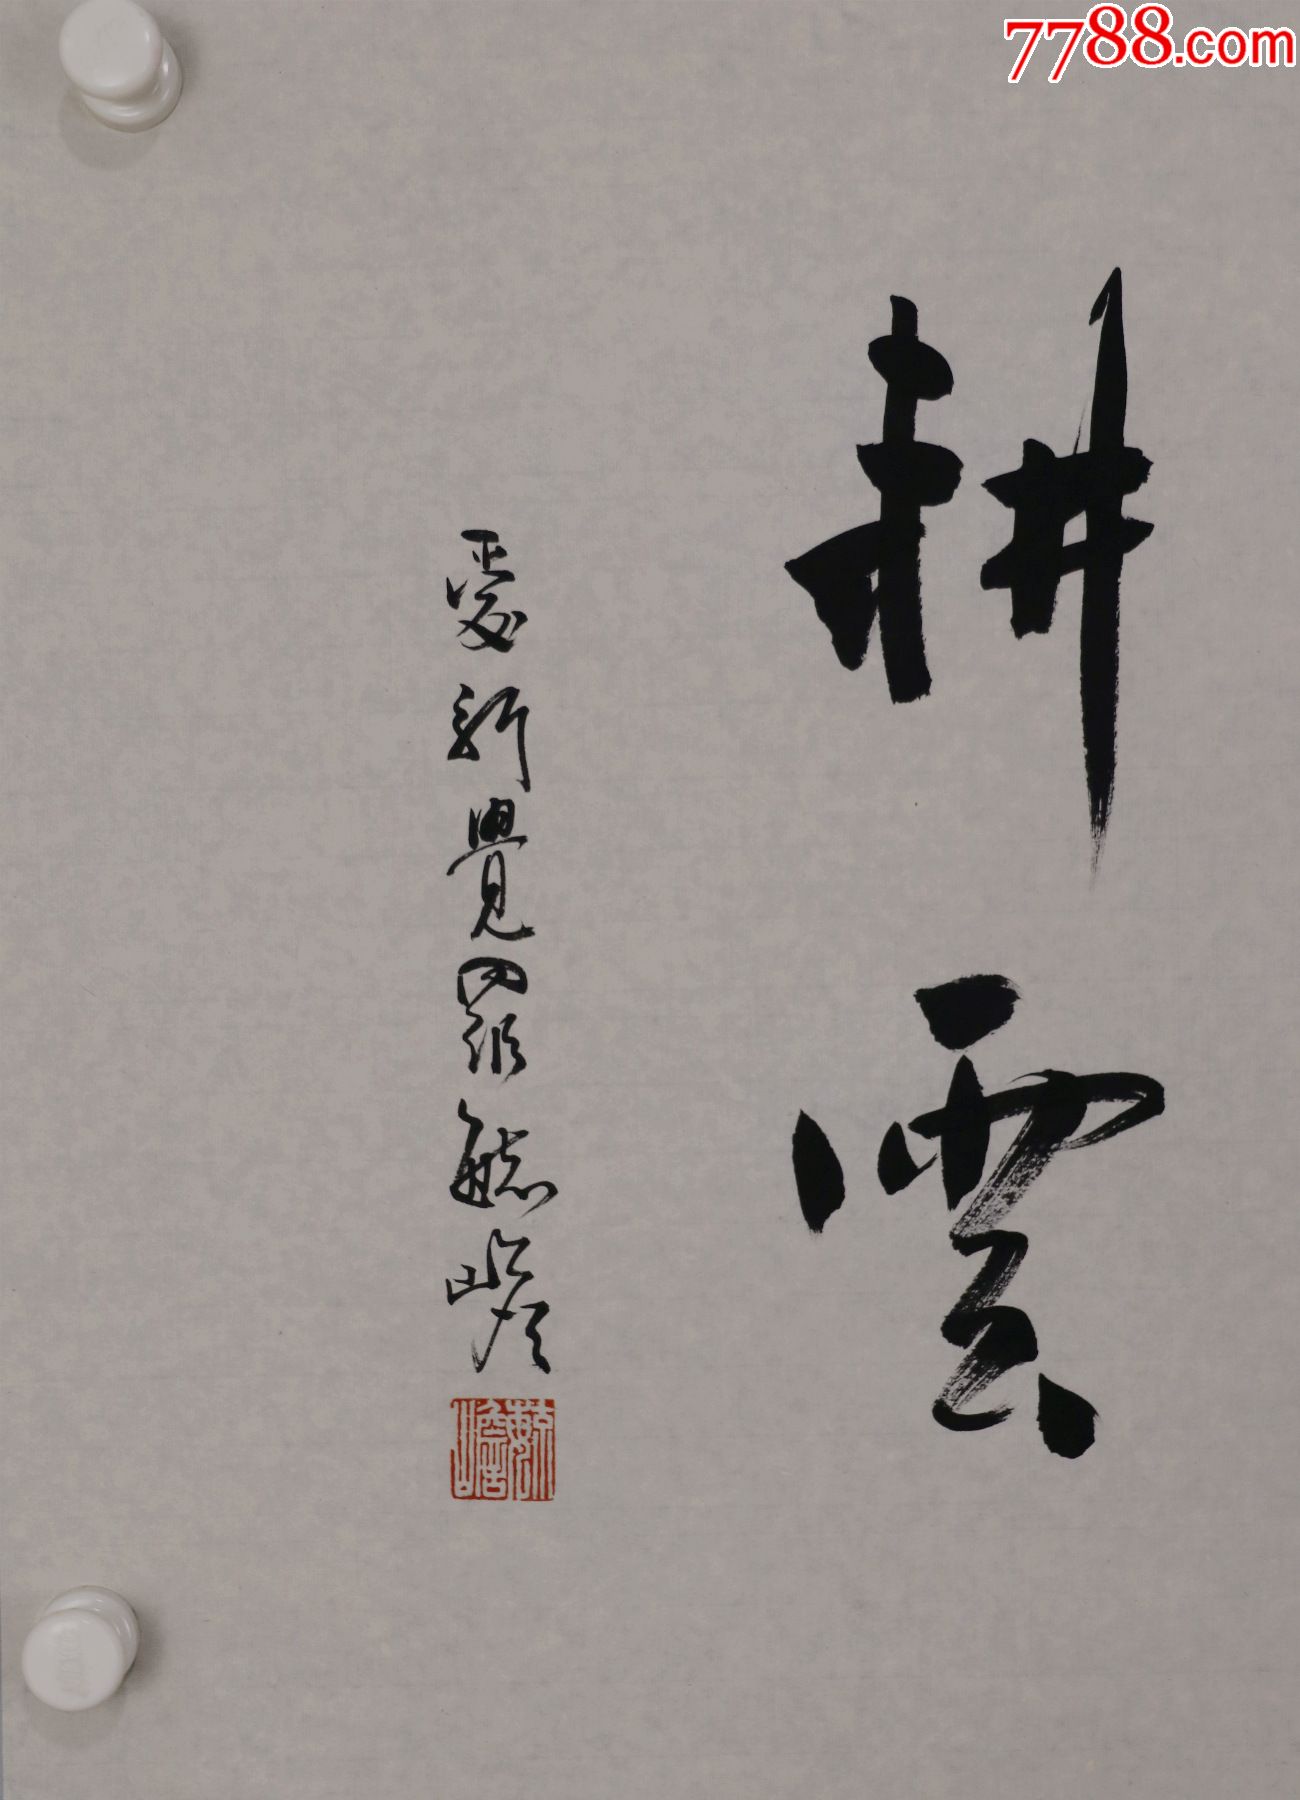 7788.com
耕雲
愛新覺羅毓嶦